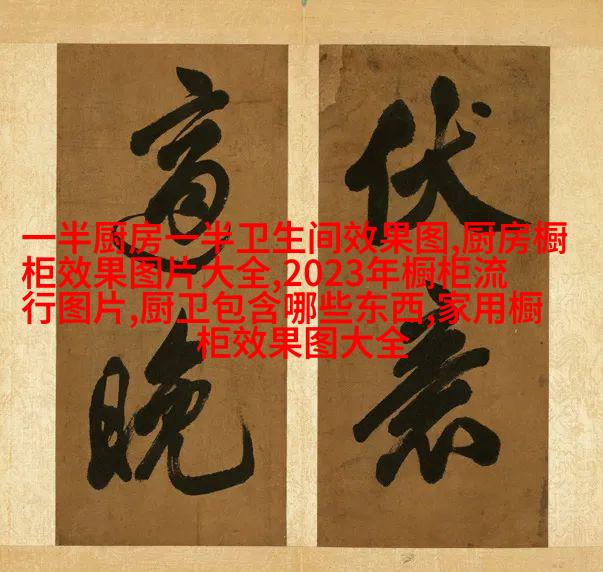 伏
晚
一半厨房一半卫生间效果图,厨房橱
柜效果图片大全,2023年橱柜流
行图片,厨卫包含哪些东西,家用橱
柜效果图大全